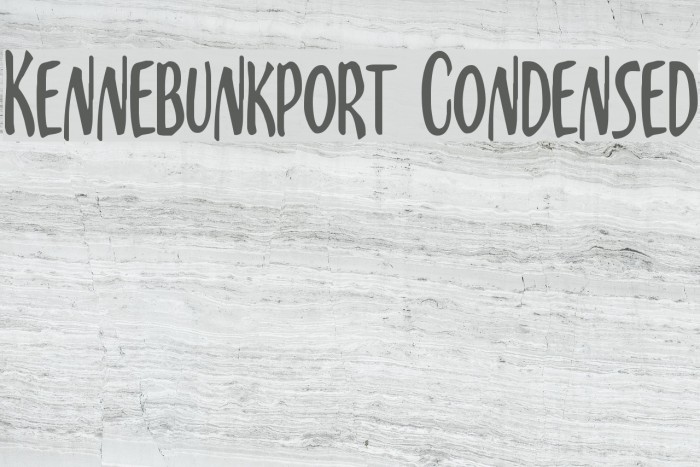 Kennebunkport Condensed